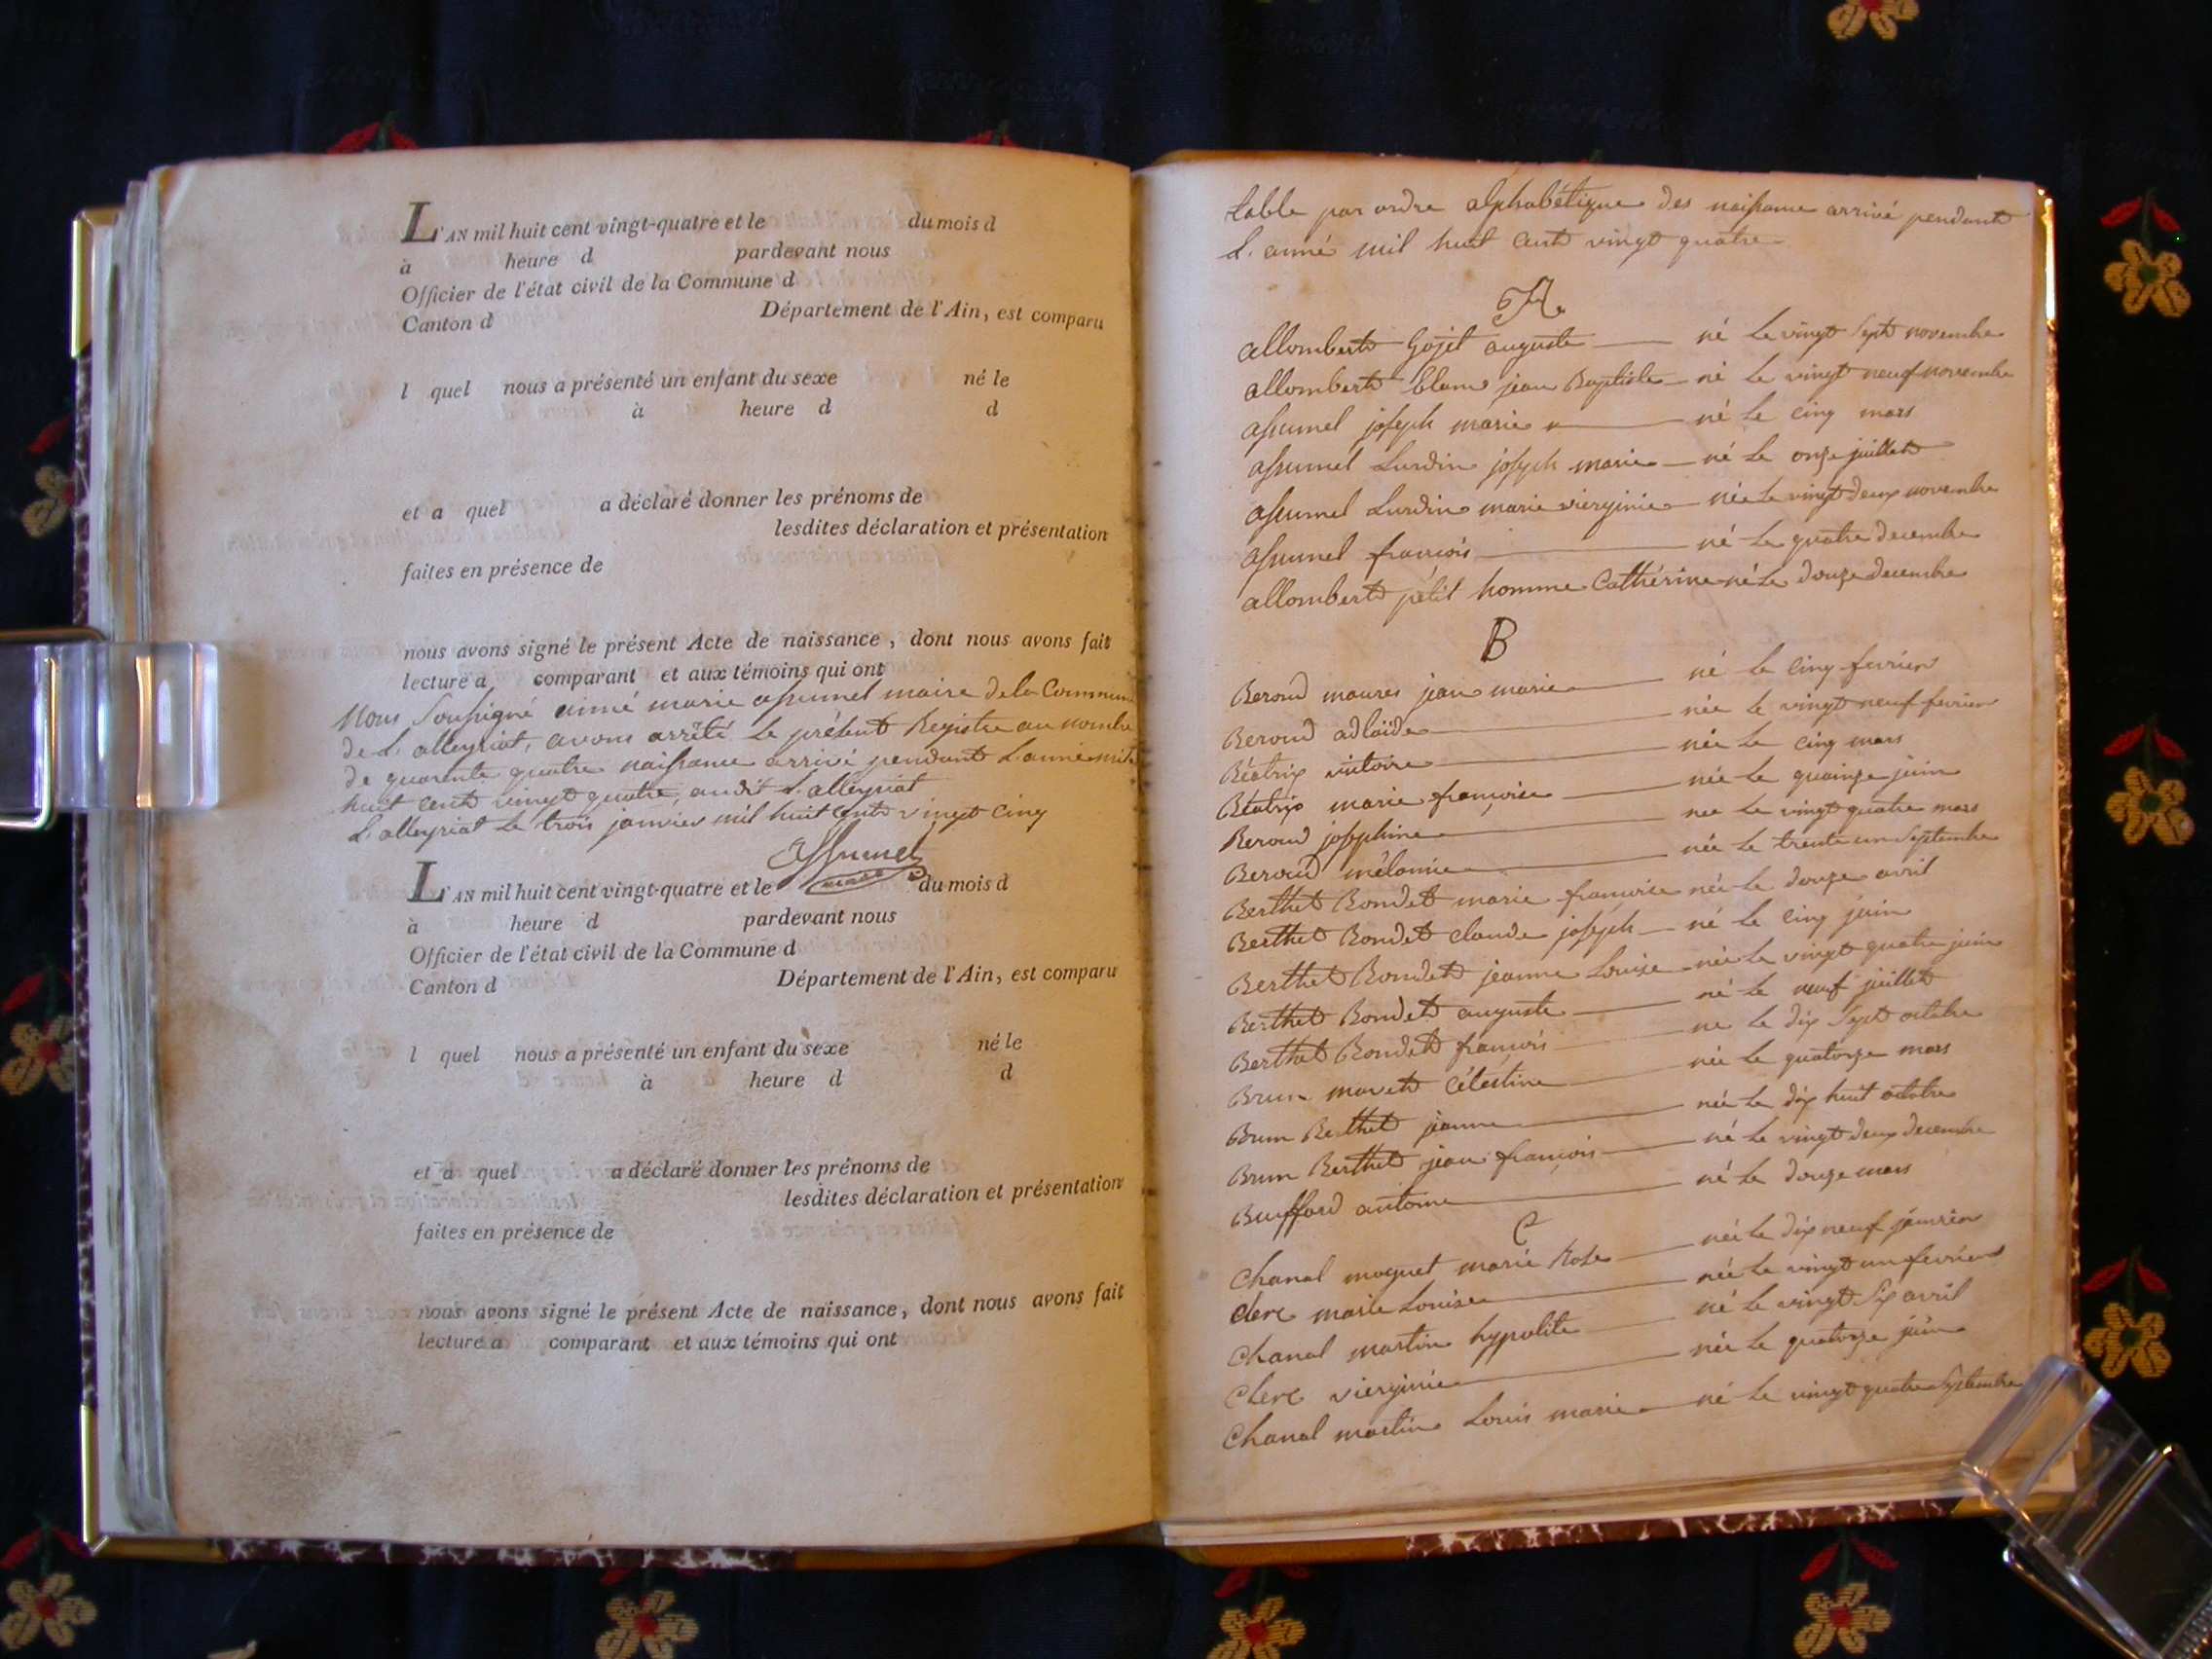 L'AN mil huit cent vingt-quatre et le du mois d
à heure d pardevant nous
Officier de l'état civil de la Commune d
Canton d Département de l'Ain, est comparu
l quel nous a présenté un enfant du sexe né le
à heure d d
et a quel a déclaré donner les prénoms de
lesdites déclaration et présentation
faites en présence de
nous avons signé le présent Acte de naissance, dont nous avons fait
lecture a comparant et aux témoins qui ont
Nous Soussigné aimé marie assumel maire de la Commune
de L'alleyriat, avons arrêté Le présent Registre au nombre
de quarente quatre naissance arrivé pendant L'année mil
huit cent vingt quatre, audit L'alleyriat
L'alleyriat Le trois janvier mil huit cent vingt cinq
Assumel
maire
L'AN mil huit cent vingt-quatre et le du mois d
à heure d pardevant nous
Officier de l'état civil de la Commune d
Canton d Département de l'Ain, est comparu
l quel nous a présenté un enfant du sexe né le
à heure d d
et a quel a déclaré donner les prénoms de
lesdites déclaration et présentation
faites en présence de
nous avons signé le présent Acte de naissance, dont nous avons fait
lecture a comparant et aux témoins qui ont
table par ordre alphabétique des naissance arrivé pendant
L'anné mil huit cent vingt quatre
A.
allombert Gojet auguste né Le vingt sept novembre
allombert blanc jean Baptiste né Le vingt neuf novembre
assumel joseph marie né Le cinq mars
assumel Lurdin joseph marie né Le onze juillet
assumel Lurdin marie vierginie née Le vingt deux novembre
assumel francois né Le quatre decembre
allombert petit homme Cathérine né Le douze decembre
B
Beroud maures jean marie né Le cinq fevrier
Beroud adlaïde née Le vingt neuf fevrier
Béatrix victoire née Le cinq mars
Béatrix marie françoise née Le quainze juin
Beroud joséphine nee Le vingt quatre mars
Beroud mélanie née Le trente un Septembre
Berthet Bondet marie francoise née Le douze avril
Berthet Bondet claude joséph né Le cinq juin
Berthet Bondet jeanne Louise née Le vingt quatre juin
Berthet Bondet auguste né Le neuf juillet
Berthet Bondet francois ne Le dix Sept octobre
Brun mavet célestine née Le quatorze mars
Brun Berthet jeanne née Le dix huit octobre
Brun Berthet jean françois né Le vingt deux decembre
Buffard antoine né Le douze mars
C
Chanal moquet marie Rose née Le dix neuf janvier
Clerc marie Louise née Le vingt un fevrier
Chanal martin hypolite né Le vingt Six avril
Clerc vierginie née Le quatorze juin
Chanal martin Louis marie né Le vingt quatre Septembre